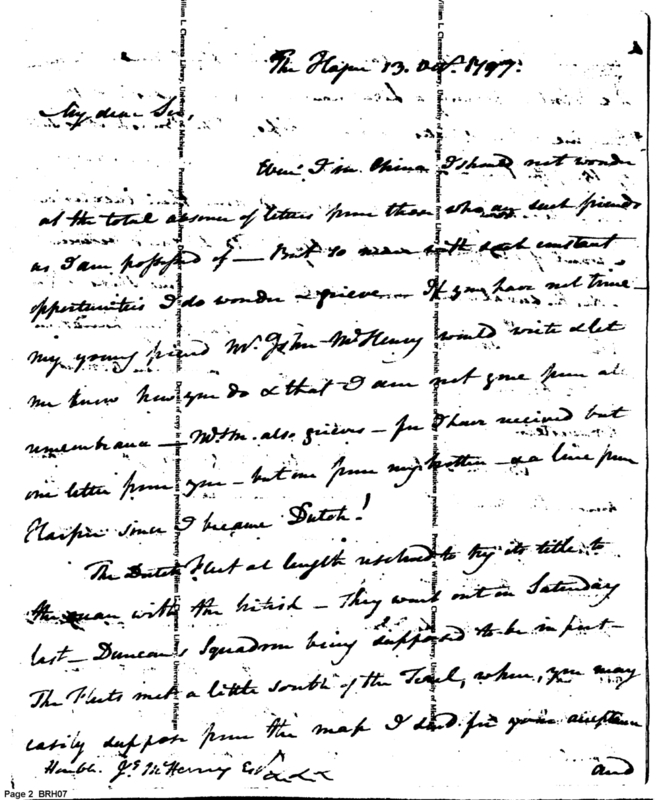 The Hague 13. Oct. 1797.
My dear Sir,
Were I in China I should not wonder
at the total absence of letters from those who are such friends
as I am possessed of — But so near with such constant
opportunities I do wonder & grieve — If you have not time
my young friend Mr. John McHenry would write & let
me know how you do & that I am not gone from al
remembrance — Mrs. M. also grieves — for I have received but
one letter from you — but one from my brother — & a line from
since I became Dutch!
The Dutch Fleet at length resolved to try its title to
the ocean with the british — They went out on Saturday
last — Duncan's Squadron being supposed to be in port —
The Fleets met a little south of the Texel, where, you may
easily suppose from the map I send for your acceptance
Honble. Js. McHenry Esqr &c &c &c
and
William L. Clements Library, University of Michigan
Page 2 BRH07